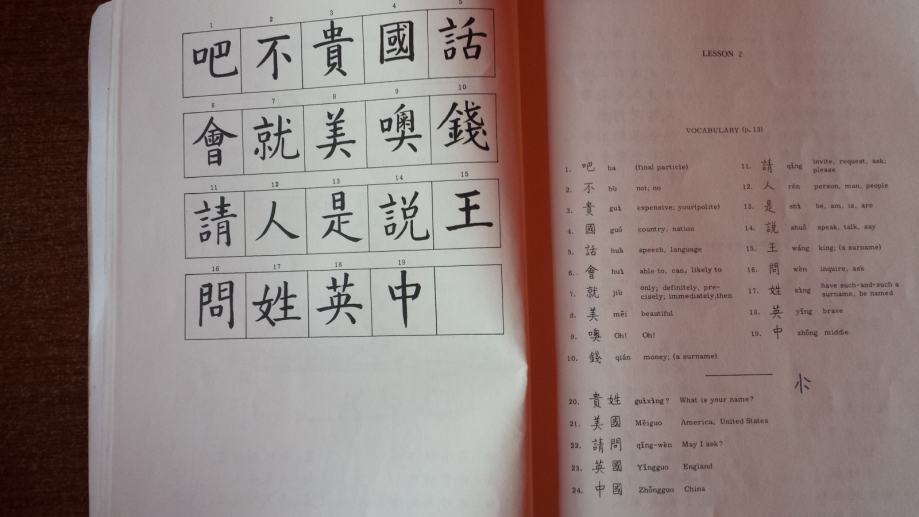 1 2 3 4 5
吧 不 貴 國 話
6 7 8 9 10
會 就 美 噢 錢
11 12 13 14 15
請 人 是 説 王
16 17 18 19
問 姓 英 中
LESSON 2
VOCABULARY (p. 13)
1. 吧 ba (final particle)
2. 不 bù not; no
3. 貴 guì expensive; your(polite)
4. 國 guó country, nation
5. 話 huà speech, language
6. 會 huì able to, can, likely to
7. 就 jiù only; definitely, pre-
cisely; immediately,then
8. 美 měi beautiful
9. 噢 Oh! Oh!
10. 錢 qián money; (a surname)
11. 請 qǐng invite, request, ask;
please
12. 人 rén person, man, people
13. 是 shì be, am, is, are
14. 説 shuō speak, talk, say
15. 王 wáng king; (a surname)
16. 問 wèn inquire, ask
17. 姓 xìng have such-and-such a
surname, be named
18. 英 yīng brave
19. 中 zhōng middle
20. 貴姓 guìxìng? What is your name?
21. 美國 Měiguo America, United States
22. 請問 qǐng-wèn May I ask?
23. 英國 Yīngguo England
24. 中國 Zhōngguo China